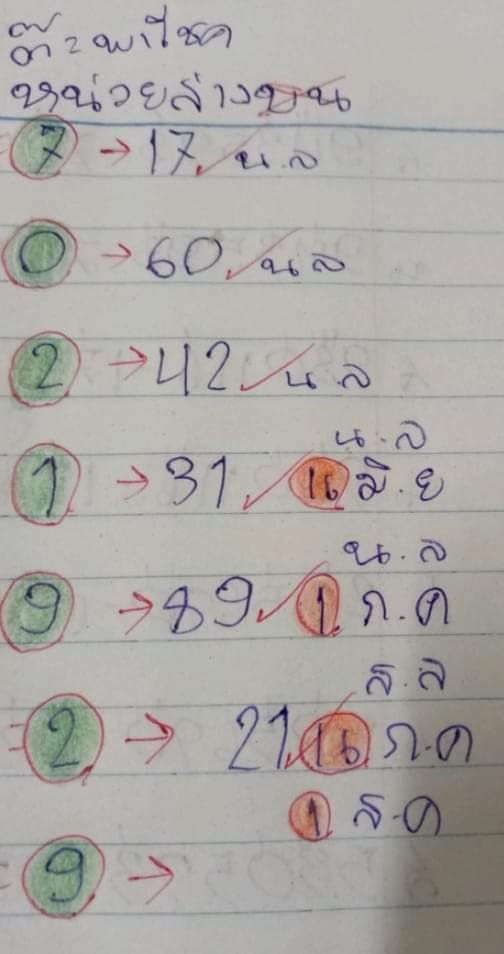 ต๊ะ พาโชค
หน่วยล่างบน
7 → 17 น.ล
0 → 60 น ล
2 → 42 น.ล
น.ล
1 → 31 16 มิ.ย
น.ล
9 → 89 1 ก.ค
ส.ล
2 → 21 16 ก.ค
1 ส.ค
9 →